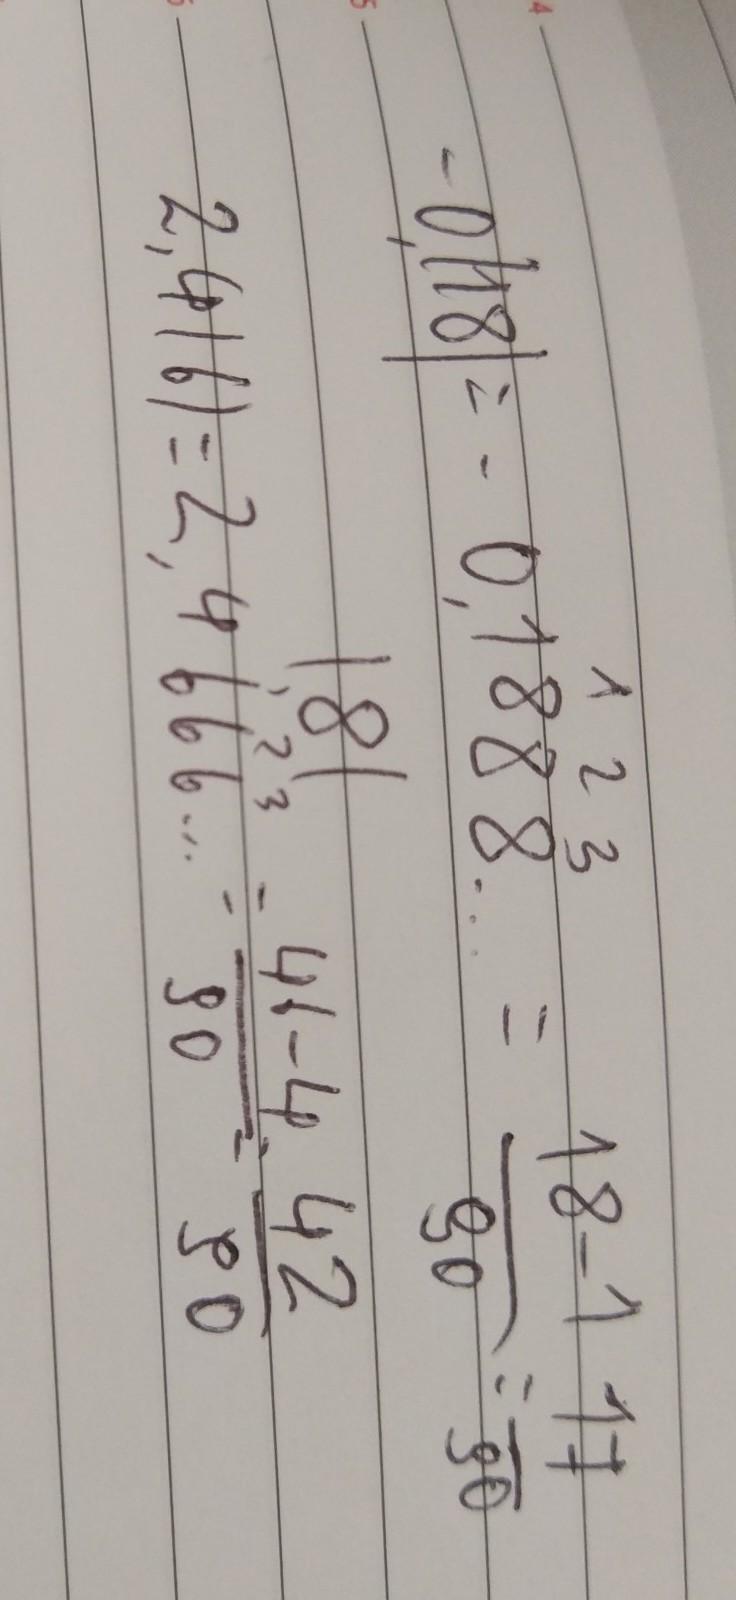 1 2 3
-0,1|8| = - 0,1 8 8 8... = 18-1/90 = 17/90
|8|
1 2 3
2,4(6) = 2,4 6 6 6... = 46-4/90 = 42/90